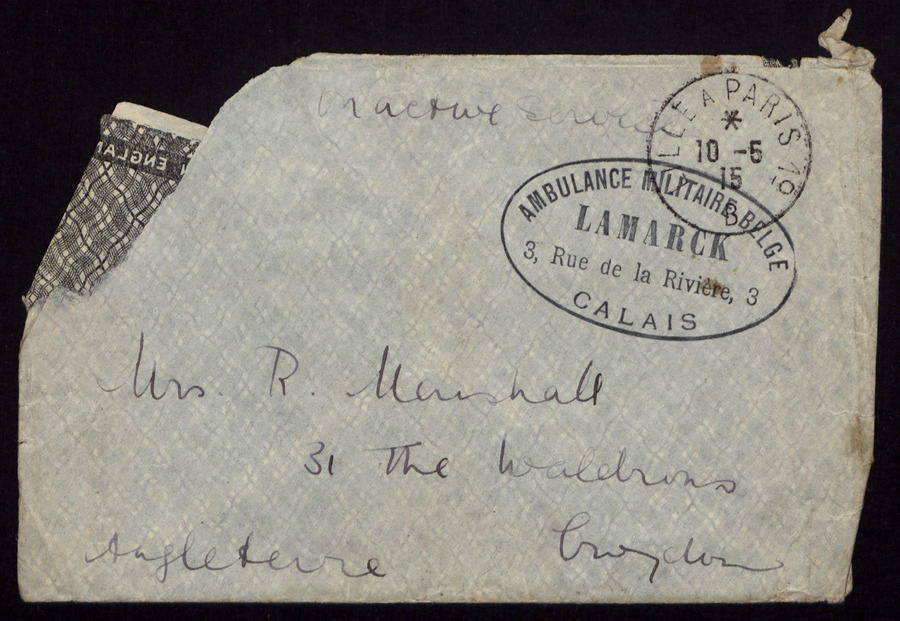 On active Service
LLE A PARIS 19
*
10 -5
15
B
AMBULANCE MILITAIRE BELGE
LAMARCK
3, Rue de la Rivière, 3
CALAIS
ENGLA
Mrs. R. Marshall
31 The Waldrons
Croydon
Angleterre